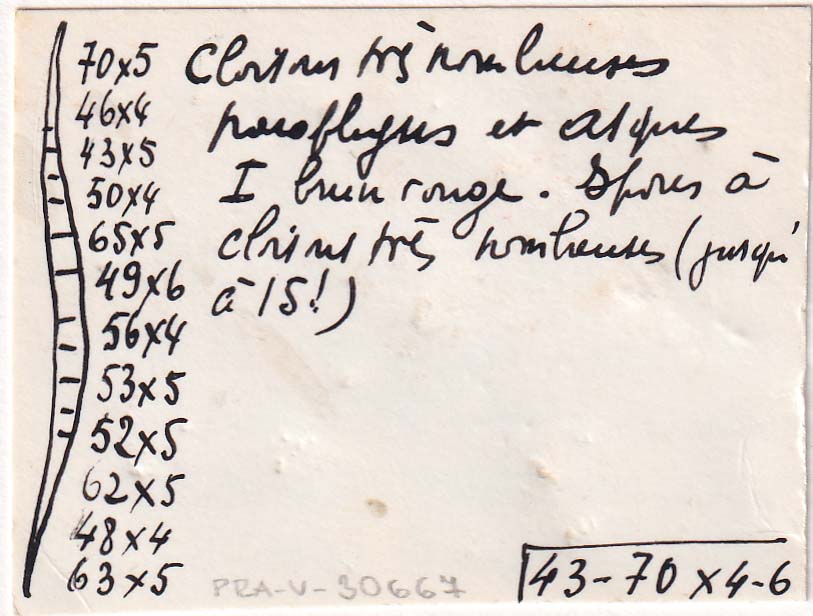 70x5
46x4
43x5
50x4
65x5
49x6
56x4
53x5
52x5
62x5
48x4
63x5
Cloisons très nombreuses
paraphyses et asques
I brun rouge. Spores à
cloisons très nombreuses (jusqu'
à 15!)
43-70 x 4-6
PRA-V-30667